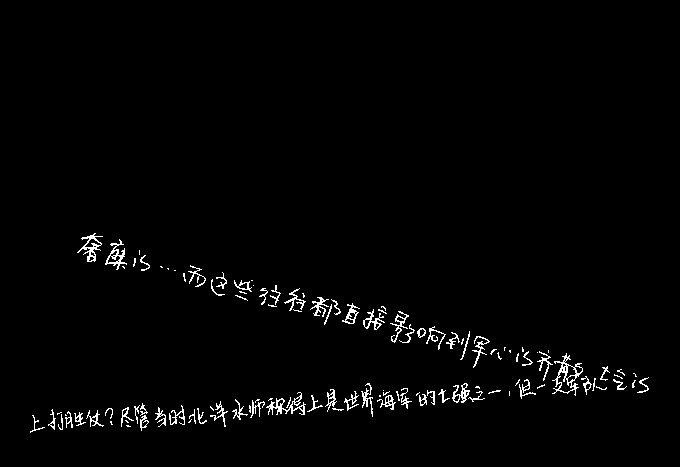 奢靡is…而这些往往都直接影响到军心is齐
上打胜仗?尽管当时北洋水师称得上是世界海军的七强之一,但一支军队is